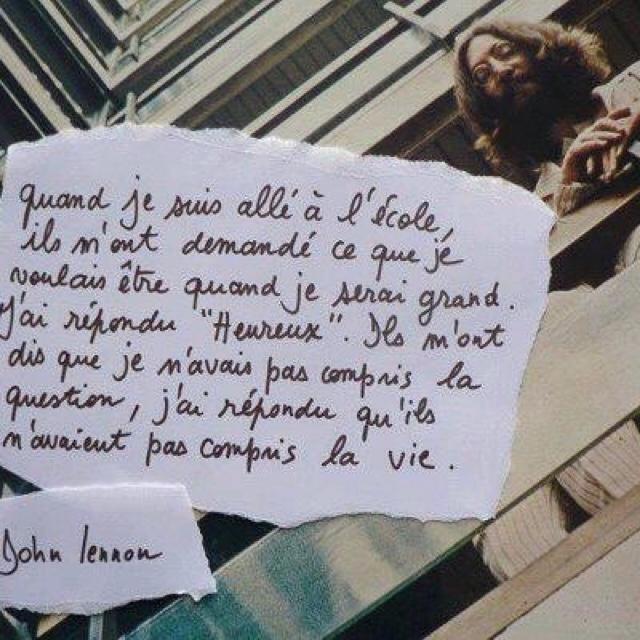 quand je suis allé à l'école,
ils m'ont demandé ce que je
voulais être quand je serai grand.
J'ai répondu "Heureux". Ils m'ont
dis que je n'avais pas compris la
question, j'ai répondu qu'ils
n'avaient pas compris la vie.
John lennon